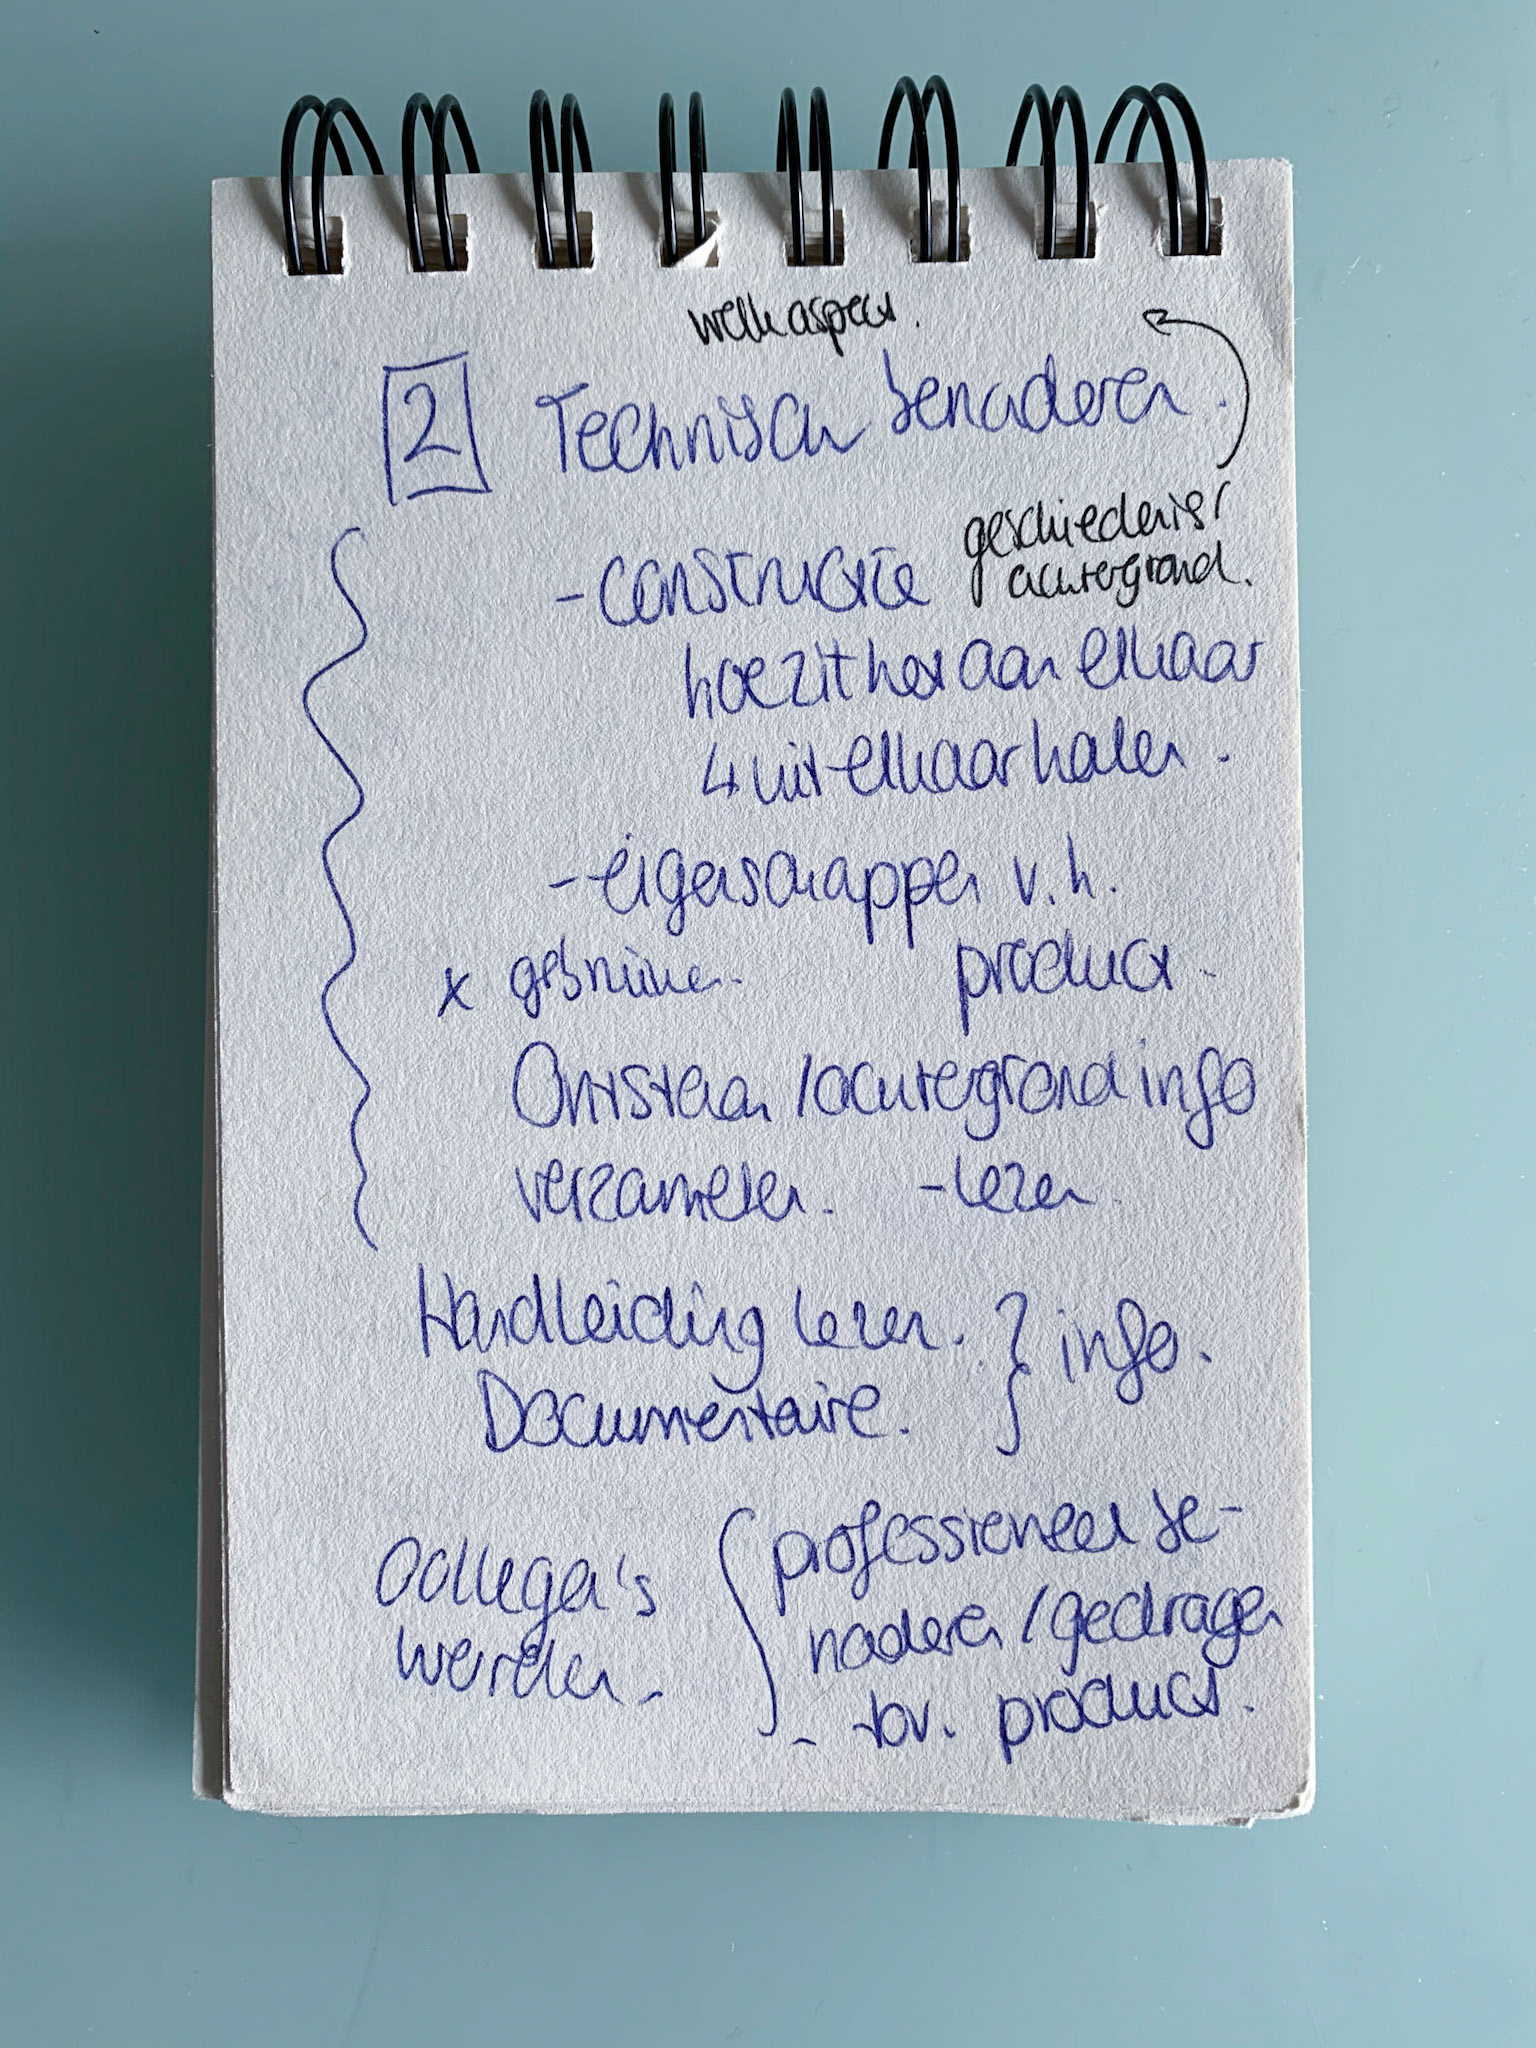 welk aspect.
2 Technisch benaderen.
geschiedenis/
achtergrond.
- constructie
hoe zit het aan elkaar
↳ uit elkaar halen.
- eigenschappen v.h.
product.
x gebruiken.
Ontstaan / achtergrond info
verzamelen. - lezen.
Handleiding lezen. } info.
Documentaire.
Collega's
werden.
professioneel be-
naderen / gedragen
- tov. product.